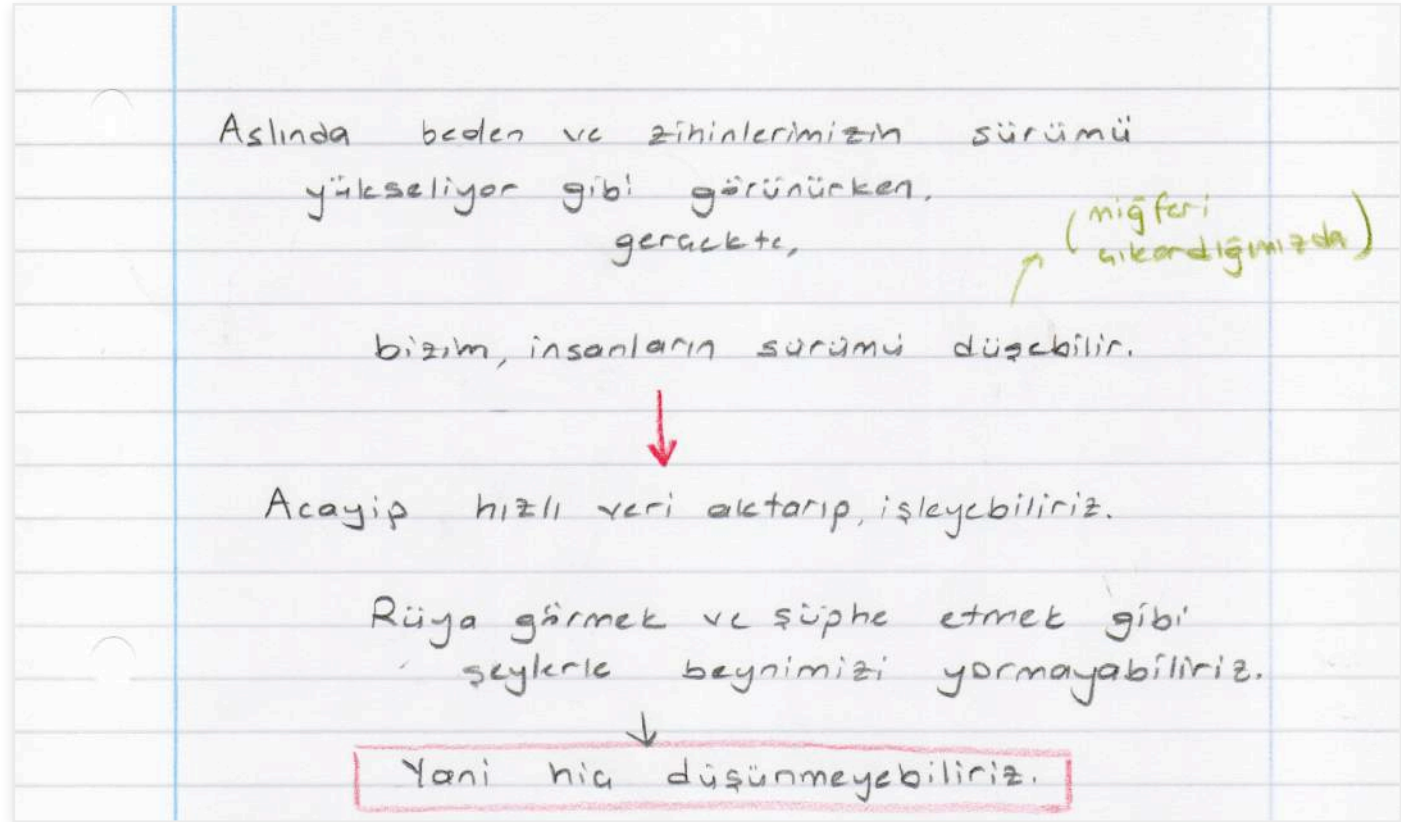 Aslında beden ve zihinlerimizin sürümü
yükseliyor gibi görünürken,
gerçekte,
(miğferi
çıkardığımızda)
bizim, insanların sürümü düşebilir.
Acayip hızlı veri aktarıp, işleyebiliriz.
Rüya görmek ve şüphe etmek gibi
şeylerle beynimizi yormayabiliriz.
Yani hiç düşünmeyebiliriz.